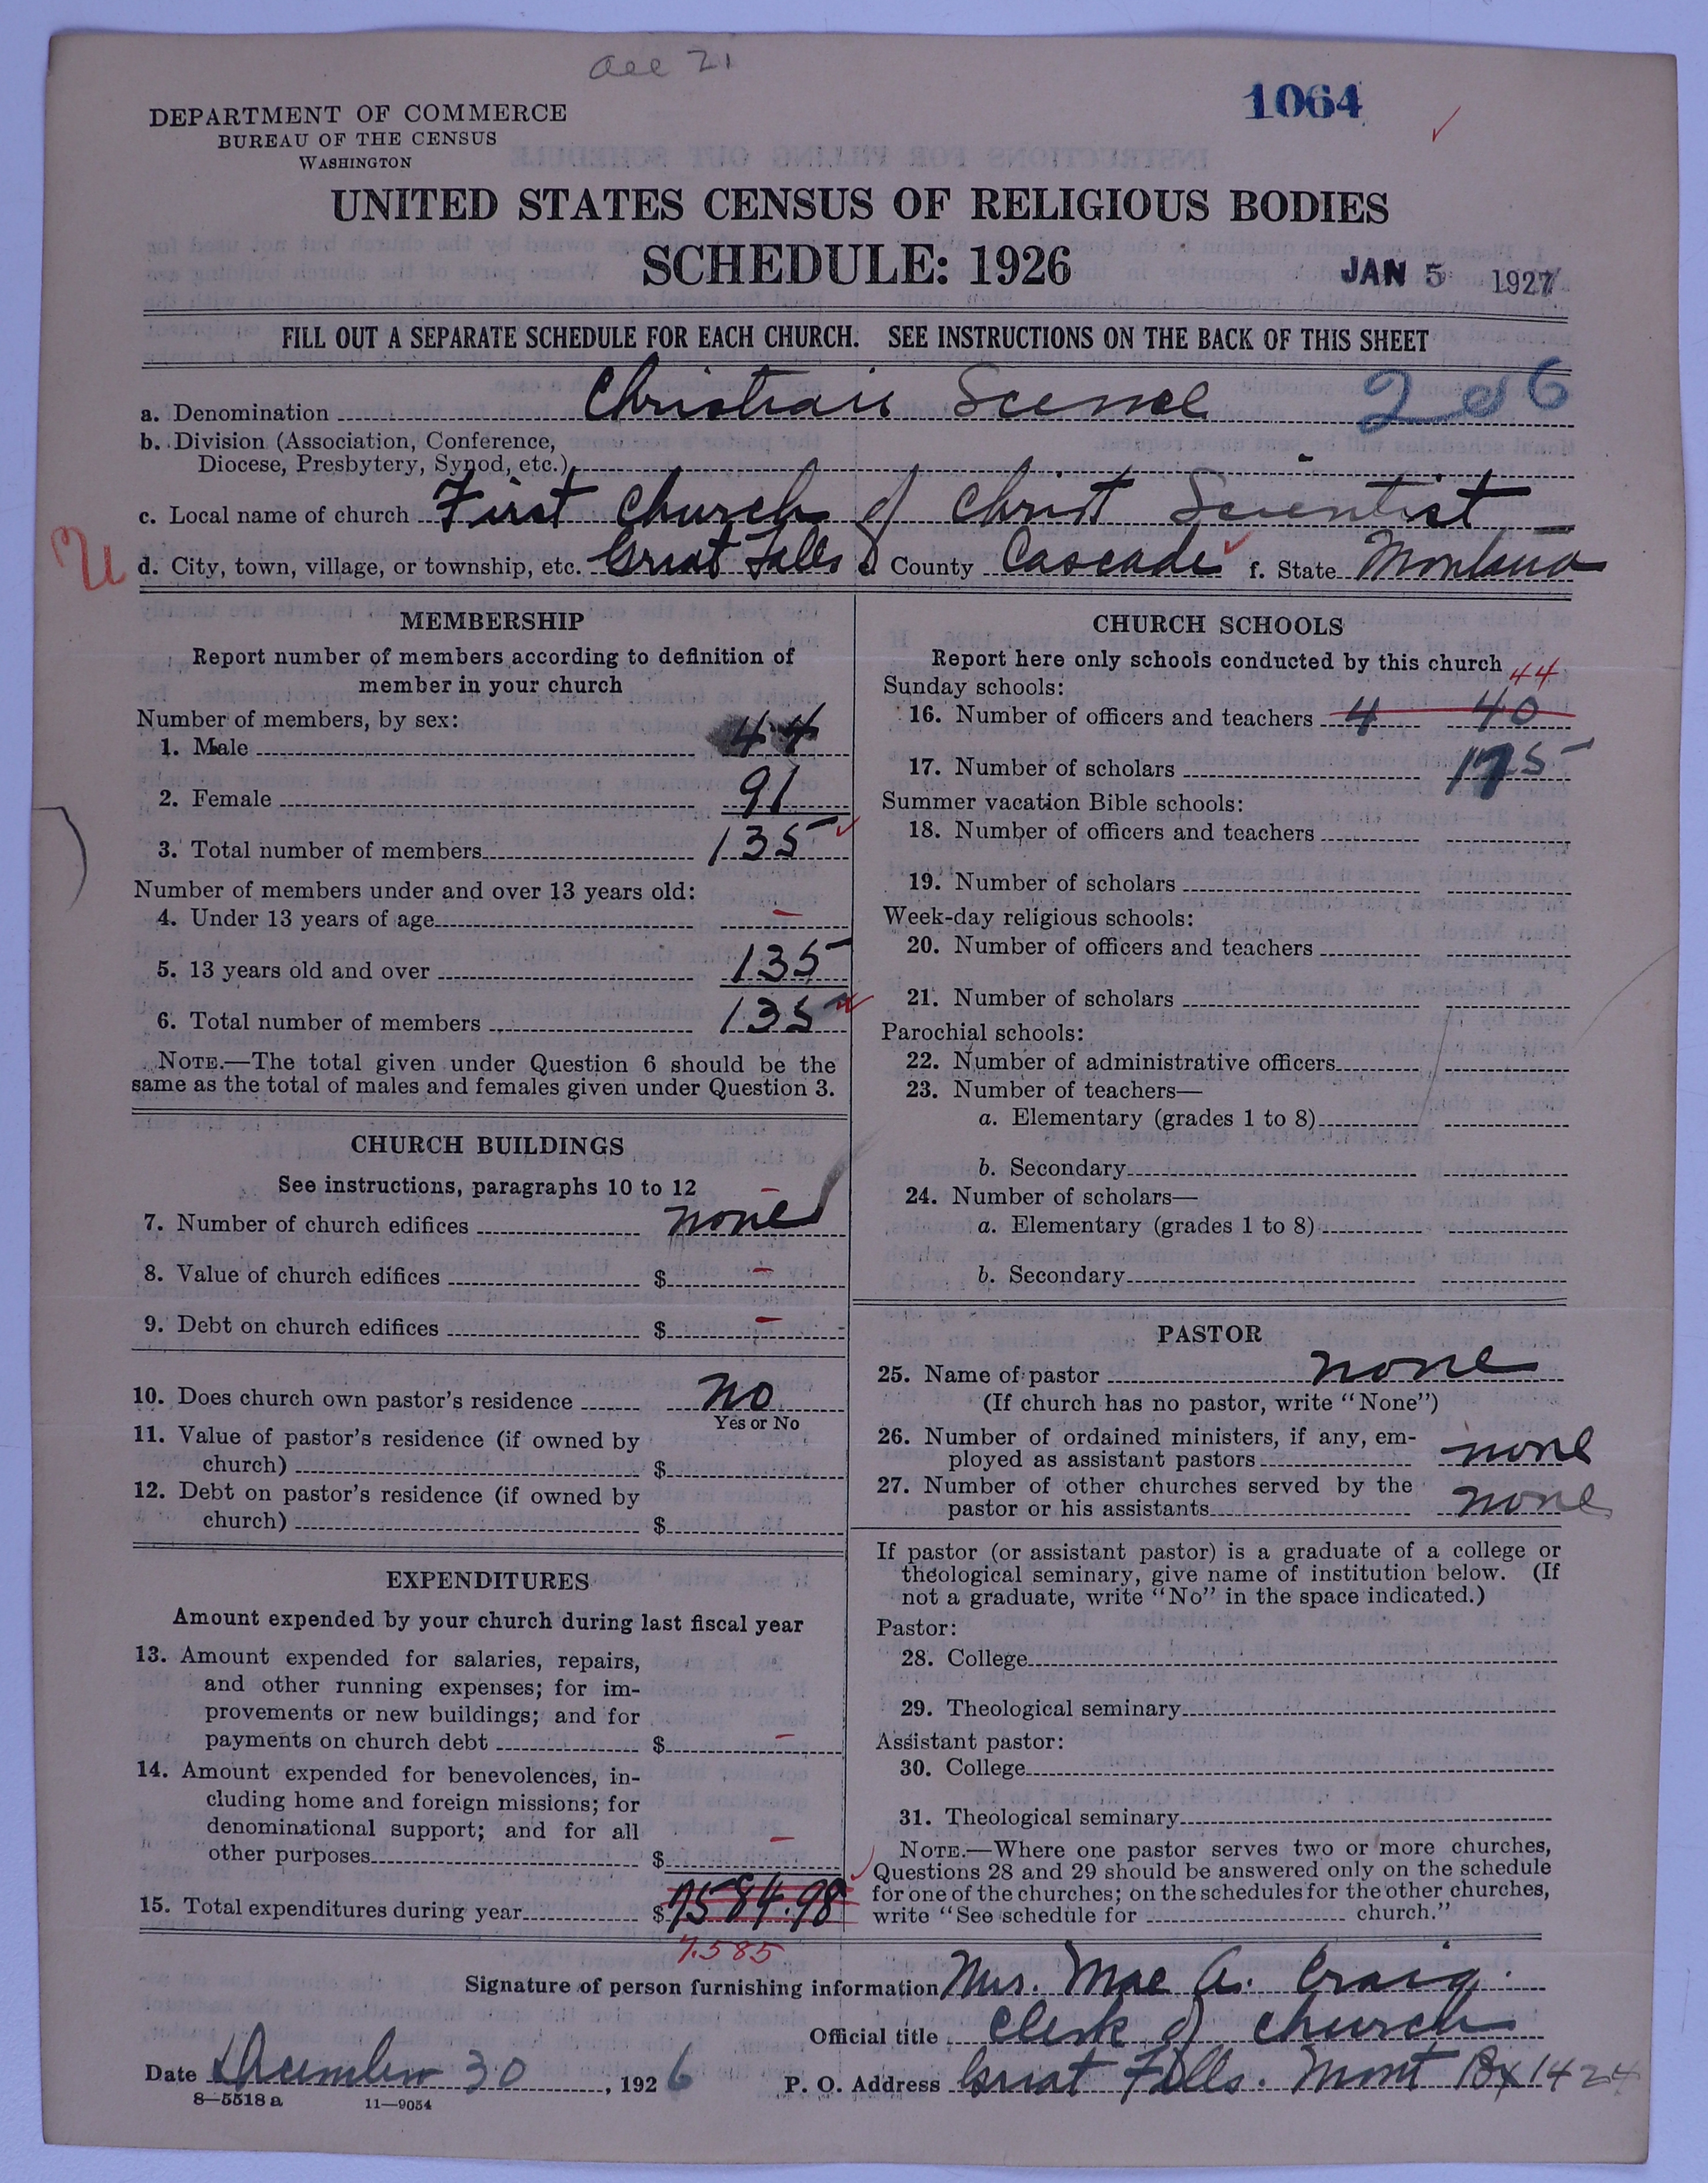 Dec 21
1064
DEPARTMENT OF COMMERCE
BUREAU OF THE CENSUS
WASHINGTON
UNITED STATES CENSUS OF RELIGIOUS BODIES
SCHEDULE: 1926
JAN 5 1927
FILL OUT A SEPARATE SCHEDULE FOR EACH CHURCH. SEE INSTRUCTIONS ON THE BACK OF THIS SHEET
a. Denomination Christian Science 206
b. Division (Association, Conference,
Diocese, Presbytery, Synod, etc.)
c. Local name of church First Church of Christ Scientist
U d. City, town, village, or township, etc. Great Falls County Cascade f. State Montana
MEMBERSHIP
Report number of members according to definition of
member in your church
Number of members, by sex:
1. Male 44
2. Female 91
3. Total number of members 135
Number of members under and over 13 years old:
4. Under 13 years of age –
5. 13 years old and over 135
6. Total number of members 135
NOTE.—The total given under Question 6 should be the
same as the total of males and females given under Question 3.
CHURCH BUILDINGS
See instructions, paragraphs 10 to 12
7. Number of church edifices none
8. Value of church edifices $ –
9. Debt on church edifices $ –
10. Does church own pastor's residence No
Yes or No
11. Value of pastor's residence (if owned by
church) $
12. Debt on pastor's residence (if owned by
church) $
EXPENDITURES
Amount expended by your church during last fiscal year
13. Amount expended for salaries, repairs,
and other running expenses; for im-
provements or new buildings; and for
payments on church debt $ –
14. Amount expended for benevolences, in-
cluding home and foreign missions; for
denominational support; and for all
other purposes $ –
15. Total expenditures during year $ 7584.98
7,585
CHURCH SCHOOLS
Report here only schools conducted by this church
Sunday schools: 44
16. Number of officers and teachers 4 40
17. Number of scholars 175
Summer vacation Bible schools:
18. Number of officers and teachers
19. Number of scholars
Week-day religious schools:
20. Number of officers and teachers
21. Number of scholars
Parochial schools:
22. Number of administrative officers
23. Number of teachers—
a. Elementary (grades 1 to 8)
b. Secondary
24. Number of scholars—
a. Elementary (grades 1 to 8)
b. Secondary
PASTOR
25. Name of pastor none
(If church has no pastor, write "None")
26. Number of ordained ministers, if any, em-
ployed as assistant pastors none
27. Number of other churches served by the
pastor or his assistants none
If pastor (or assistant pastor) is a graduate of a college or
theological seminary, give name of institution below. (If
not a graduate, write "No" in the space indicated.)
Pastor:
28. College
29. Theological seminary
Assistant pastor:
30. College
31. Theological seminary
NOTE.—Where one pastor serves two or more churches,
Questions 28 and 29 should be answered only on the schedule
for one of the churches; on the schedules for the other churches,
write "See schedule for church."
Signature of person furnishing information Mrs. Mae A. Craig.
Official title Clerk of Church
Date December 30, 1926 P. O. Address Great Falls. Mont Bx 1424
8—5518 a 11—9054